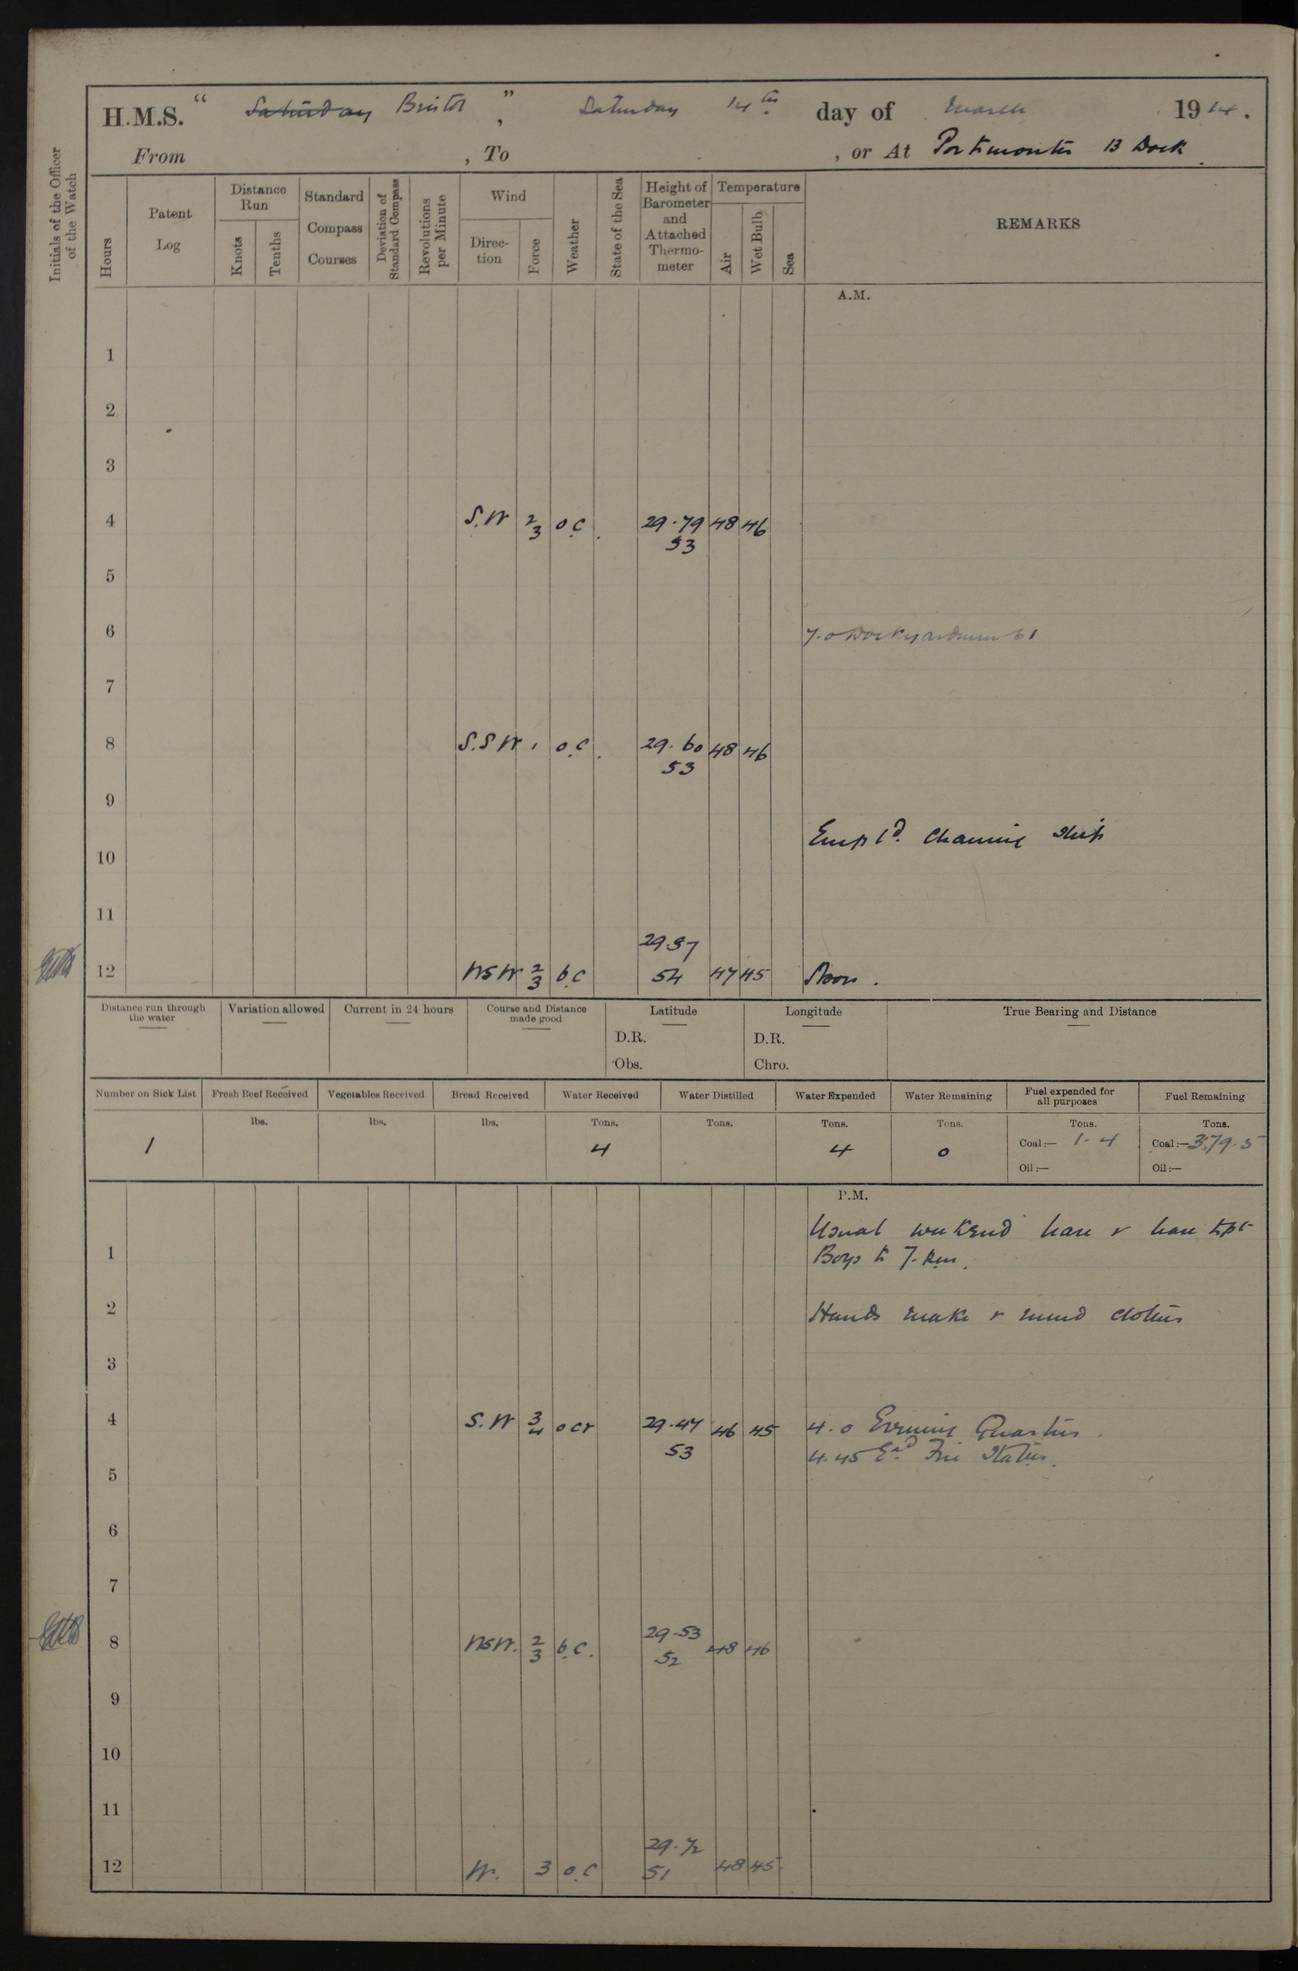 H.M.S. " Saturday Bristol ", Saturday 14th day of March 1914.
From , To , or At Portsmouth B Dock.
Initials of the Officer of the Watch
Hours
Patent Log
Distance Run
Knots
Tenths
Standard Compass Courses
Deviation of Standard Compass
Revolutions per Minute
Wind
Direction
Force
Weather
State of the Sea
Height of Barometer and Attached Thermometer
Temperature
Air
Wet Bulb
Sea
REMARKS
A.M.
1
2
3
4 S.W 2/3 o.c. 29.79 48 46
53
5
6 7.0 Dockyardmen 61
7
8 S.S W 1 o.c. 29.60 48 46
53
9
Emp'd. Cleaning Ship
10
11
29.57
12 WSW 2/3 b.c 54 47 45 Noon.
Distance run through the water
Variation allowed
Current in 24 hours
Course and Distance made good
Latitude
D.R.
Obs.
Longitude
D.R.
Chro.
True Bearing and Distance
Number on Sick List Fresh Beef Received Vegetables Received Bread Received Water Received Water Distilled Water Expended Water Remaining Fuel expended for all purposes Fuel Remaining
lbs. lbs. lbs. Tons. Tons. Tons. Tons. Tons. Tons.
1 4 4 0 Coal:— 1.4 Coal:—379.5
Oil:— Oil:—
P.M.
Usual weekend leave & leave to
1 Boys to 7.
2 Hands make & mend clothes
3
4 S.W 3/4 ocr 29.47 46 45 4.0 Evening Quarters.
53 4.45 Ex'd Fire Stations.
5
6
7
29.53
8 WSW. 2/3 b.c. 52 48 46
9
10
11
29.72
12 W. 3 o.c 51 48 45